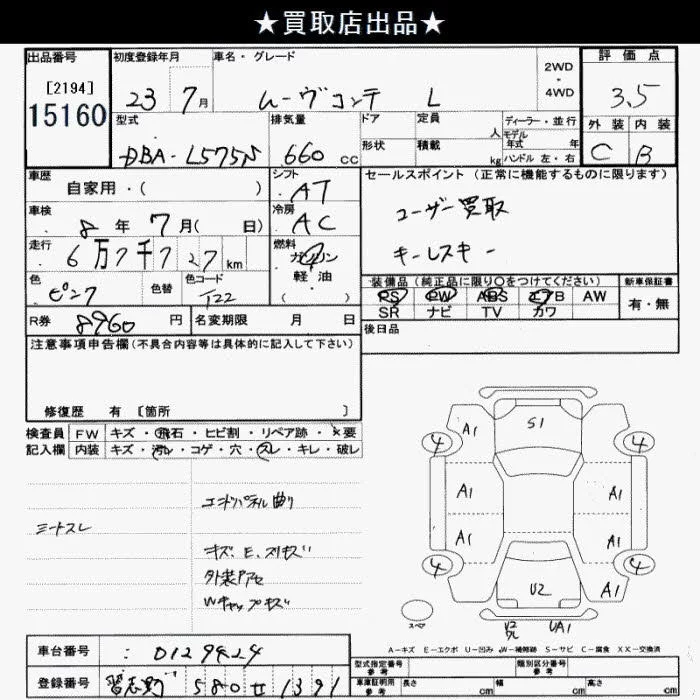 ★買取店出品★
出品番号
[2194]
15160
初度登録年月
23 7月
車名・グレード
ムーヴコンテ L
2WD
・
4WD
評価点
3.5
外装 内装
C B
型式
DBA-L575S
排気量
660 cc
ドア
形状
定員 人
積載 kg
ディーラー・並行
モデル
年式 年
ハンドル 左・右
車歴
自家用・( )
シフト
AT
車検
8年 7月( 日)
冷房
AC
走行
6万7千7 27 km
燃料
ガソリン
軽・油
( )
色
ピンク
色替
色コード
T22
R券
8960 円
名変期限 月 日
セールスポイント (正常に機能するものに限ります)
ユーザー買取
キーレスキー
装備品 (純正品に限り○をつけてください)
PS PW ABS エアB AW
SR ナビ TV カワ
新車保証書
有・無
後日品
注意事項申告欄(不具合内容等は具体的に記入して下さい)
修復歴 有 [箇所 ]
検査員
記入欄
FW キズ・飛石・ヒビ割・リペア跡・×要
内装 キズ・汚レ・コゲ・穴・スレ・キレ・破レ
シートスレ
エンドパネル曲り
キズ、E、スリキズ
外装アセ
Wキャップキズ
S1
A1
4
4
A1
A1
A1
A1
4
4
A1
U2
UA1
スペア
A-キズ E-エクボ U-凹み W-補修跡 S-サビ C-腐食 XX-交換済
車台番号
: 0129424
登録番号
習志野 580 1391
型式指定番号
参考
類別区分番号
参考
車庫証明用
参考
長さ cm
幅 cm
高さ cm